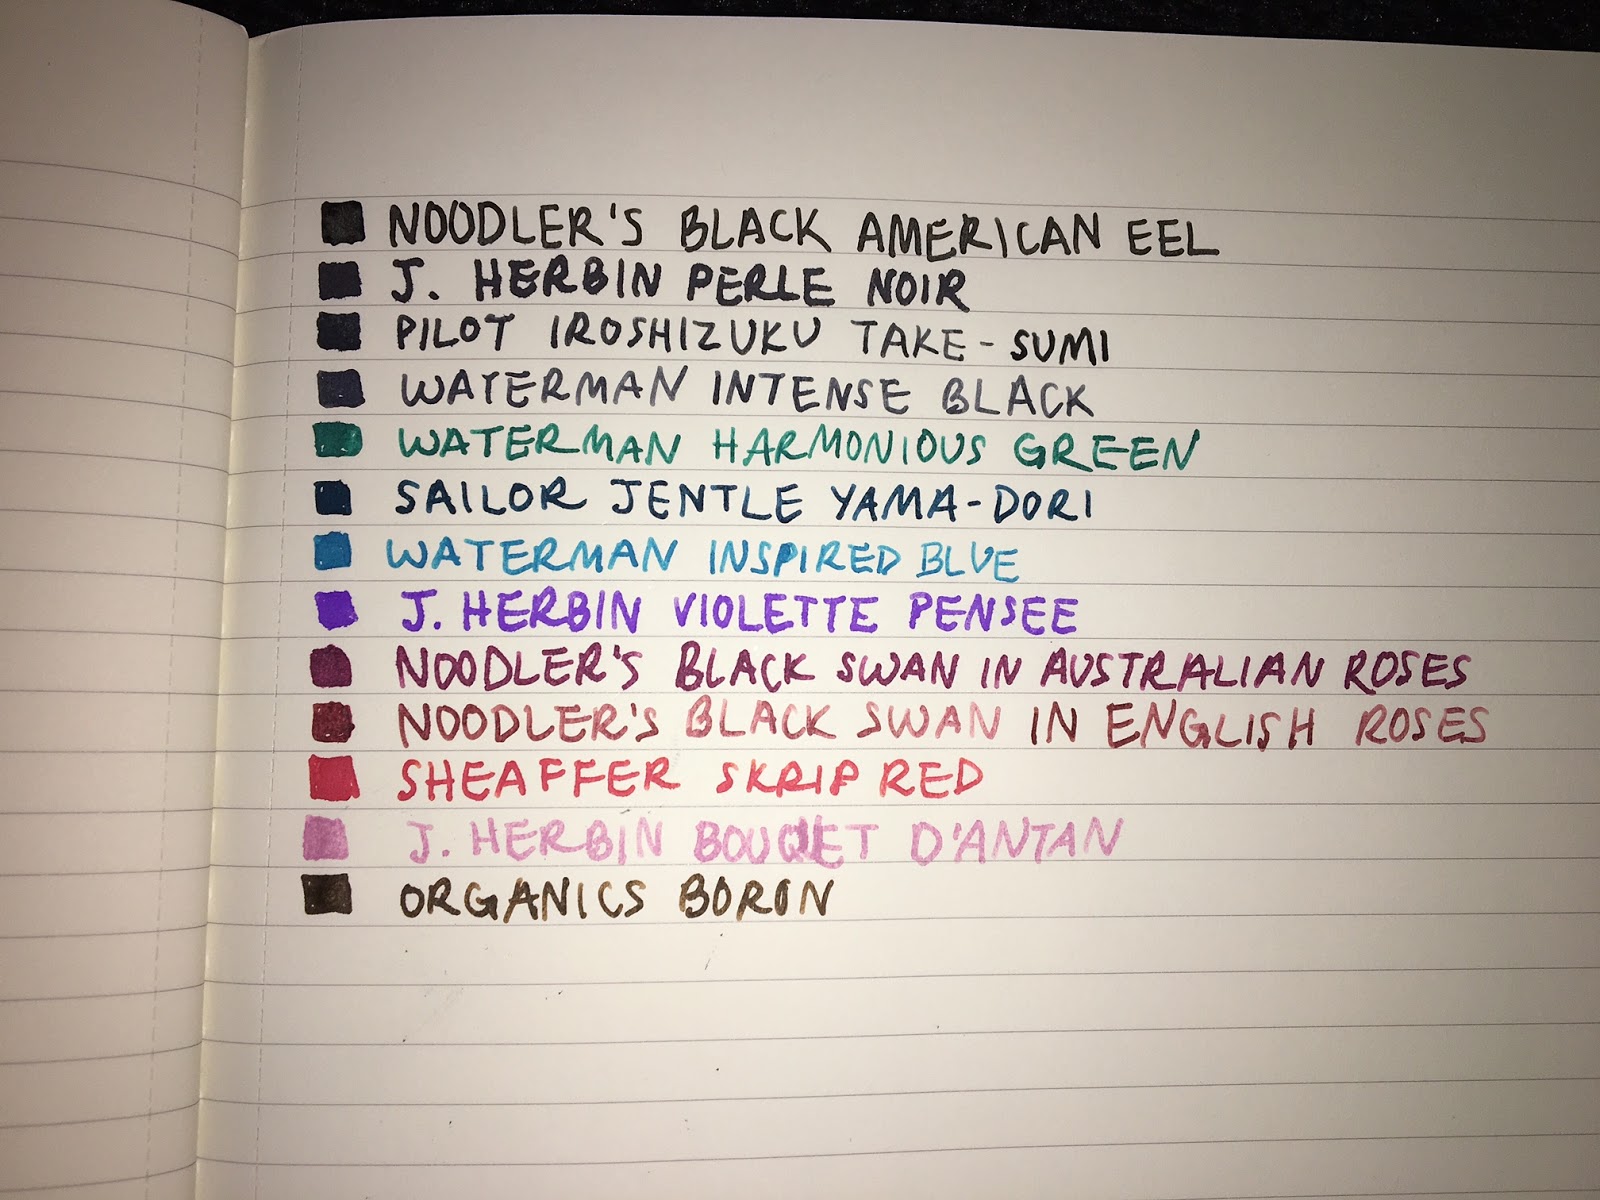 NOODLER'S BLACK AMERICAN EEL
J. HERBIN PERLE NOIR
PILOT IROSHIZUKU TAKE-SUMI
WATERMAN INTENSE BLACK
WATERMAN HARMONIOUS GREEN
SAILOR JENTLE YAMA-DORI
WATERMAN INSPIRED BLUE
J. HERBIN VIOLETTE PENSEE
NOODLER'S BLACK SWAN IN AUSTRALIAN ROSES
NOODLER'S BLACK SWAN IN ENGLISH ROSES
SHEAFFER SKRIP RED
J. HERBIN BOUQUET D'ANTAN
ORGANICS BORON